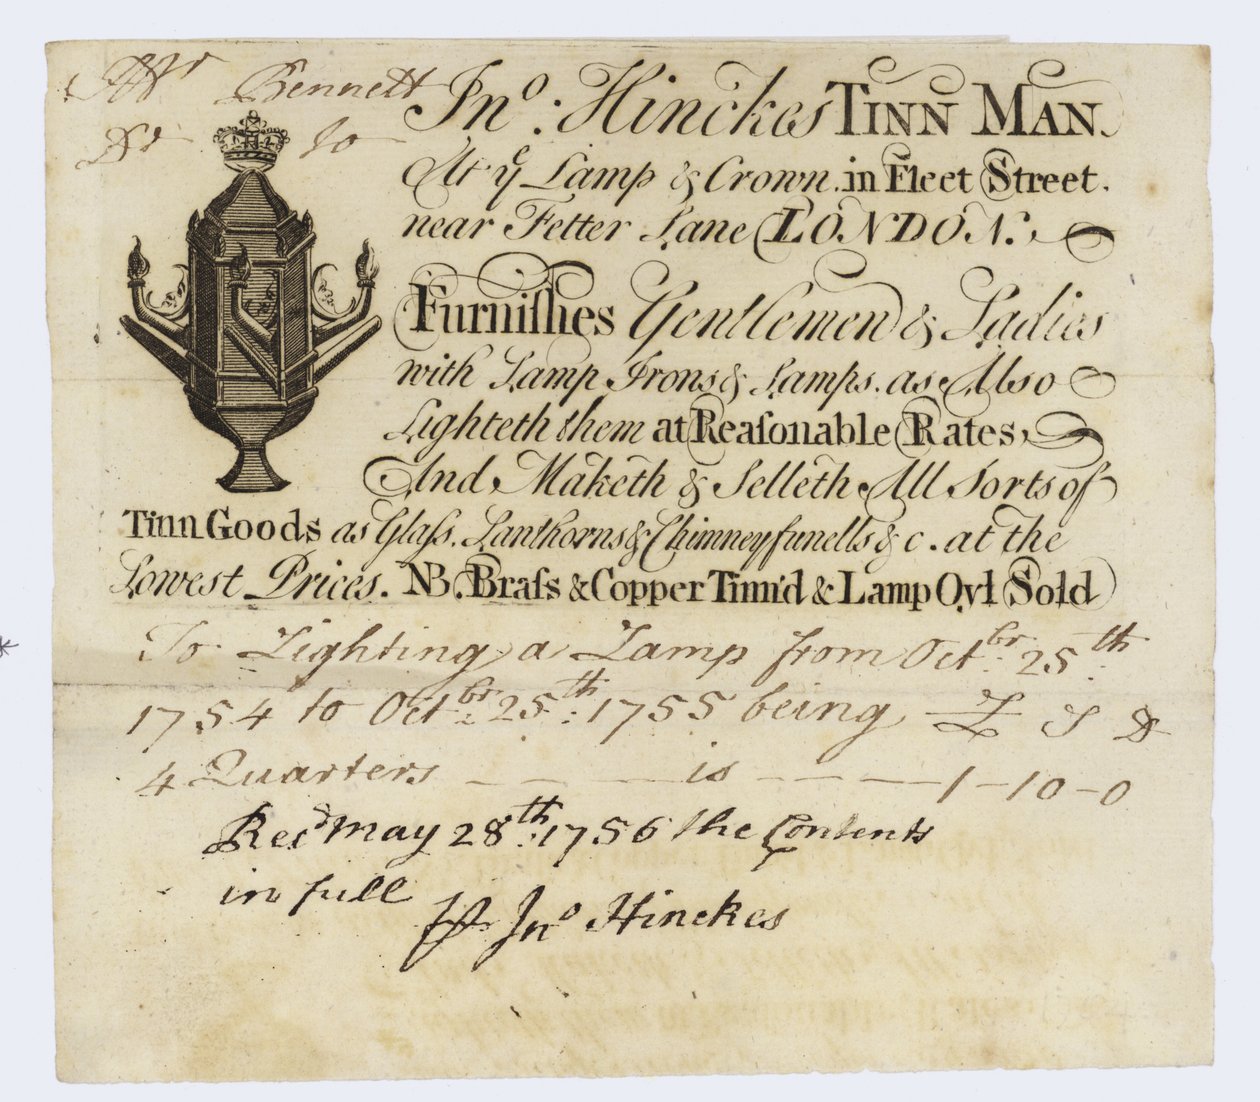 Mr Bennett
Dr to
Jno. Hinckes TINN MAN.
At ye Lamp & Crown. in Fleet Street.
near Fetter Lane LONDON.
Furniſhes Gentlemen & Ladies
with Lamp Irons & Lamps. as Also
Lighteth them at Reaſonable Rates,
And Maketh & Selleth All Sorts of
Tinn Goods as Glaſs. Lanthorns & Chimney funells & c. at the
Lowest Prices. NB. Braſs & Copper Tinn'd & Lamp Oyl Sold
To Lighting a Lamp from Octbr. 25th.
1754 to Octbr. 25th: 1755 being £ S D
4 Quarters — — — is — — — 1-10-0
Recd May 28th: 1756 the Contents
in full
Jno Hinckes